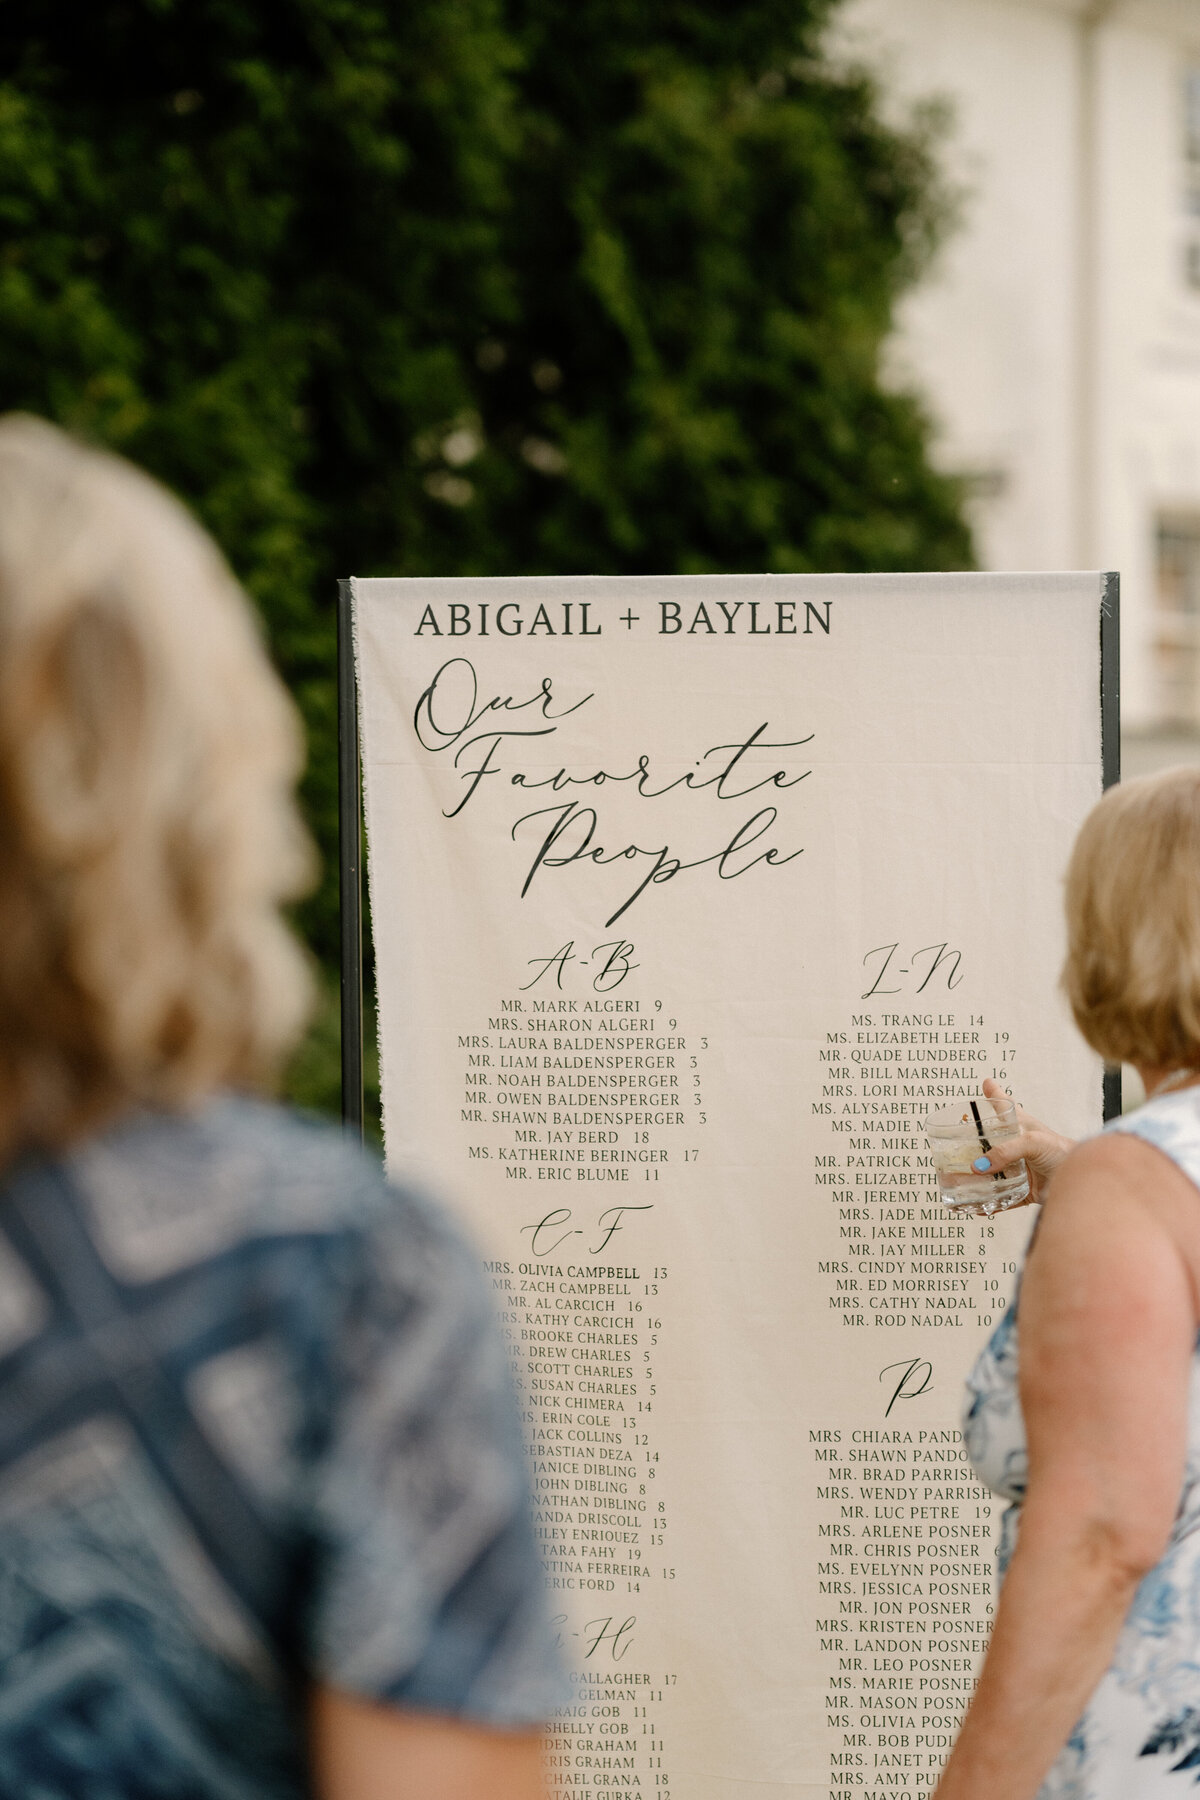 ABIGAIL + BAYLEN
Our
Favorite
People
A-B
MR. MARK ALGERI 9
MRS. SHARON ALGERI 9
MRS. LAURA BALDENSPERGER 3
MR. LIAM BALDENSPERGER 3
MR. NOAH BALDENSPERGER 3
MR. OWEN BALDENSPERGER 3
MR. SHAWN BALDENSPERGER 3
MR. JAY BERD 18
MS. KATHERINE BERINGER 17
MR. ERIC BLUME 11
C-F
MRS. OLIVIA CAMPBELL 13
MR. ZACH CAMPBELL 13
MR. AL CARCICH 16
MRS. KATHY CARCICH 16
MS. BROOKE CHARLES 5
MR. DREW CHARLES 5
MR. SCOTT CHARLES 5
MRS. SUSAN CHARLES 5
NICK CHIMERA 14
MS. ERIN COLE 13
JACK COLLINS 12
SEBASTIAN DEZA 14
JANICE DIBLING 8
JOHN DIBLING 8
DIBLING 8
DRISCOLL 13
ENRIQUEZ 15
TARA FAHY 19
FERREIRA 15
ERIC FORD 14
G-H
GALLAGHER 17
GELMAN 11
CRAIG GOB 11
SHELLY GOB 11
GRAHAM 11
KRIS GRAHAM 11
GRANA 18
GURKA 12
L-N
MS. TRANG LE 14
MS. ELIZABETH LEER 19
MR. QUADE LUNDBERG 17
MR. BILL MARSHALL 16
MRS. LORI MARSHALL 6
MS. ALYSABETH
MS. MADIE
MR. MIKE
MR. PATRICK
MRS. ELIZABETH
MR. JEREMY
MRS. JADE MILLER 8
MR. JAKE MILLER 18
MR. JAY MILLER 8
MRS. CINDY MORRISEY 10
MR. ED MORRISEY 10
MRS. CATHY NADAL 10
MR. ROD NADAL 10
P
MRS CHIARA
MR. SHAWN
MR. BRAD PARRISH
MRS. WENDY PARRISH
MR. LUC PETRE 19
MRS. ARLENE POSNER
MR. CHRIS POSNER 6
MS. EVELYNN POSNER
MRS. JESSICA POSNER
MR. JON POSNER 6
MRS. KRISTEN POSNER
MR. LANDON POSNER
MR. LEO POSNER
MS. MARIE POSNER
MR. MASON POSNE
MS. OLIVIA POSN
MR. BOB
MRS. JANET
MRS. AMY
MR. MAYO